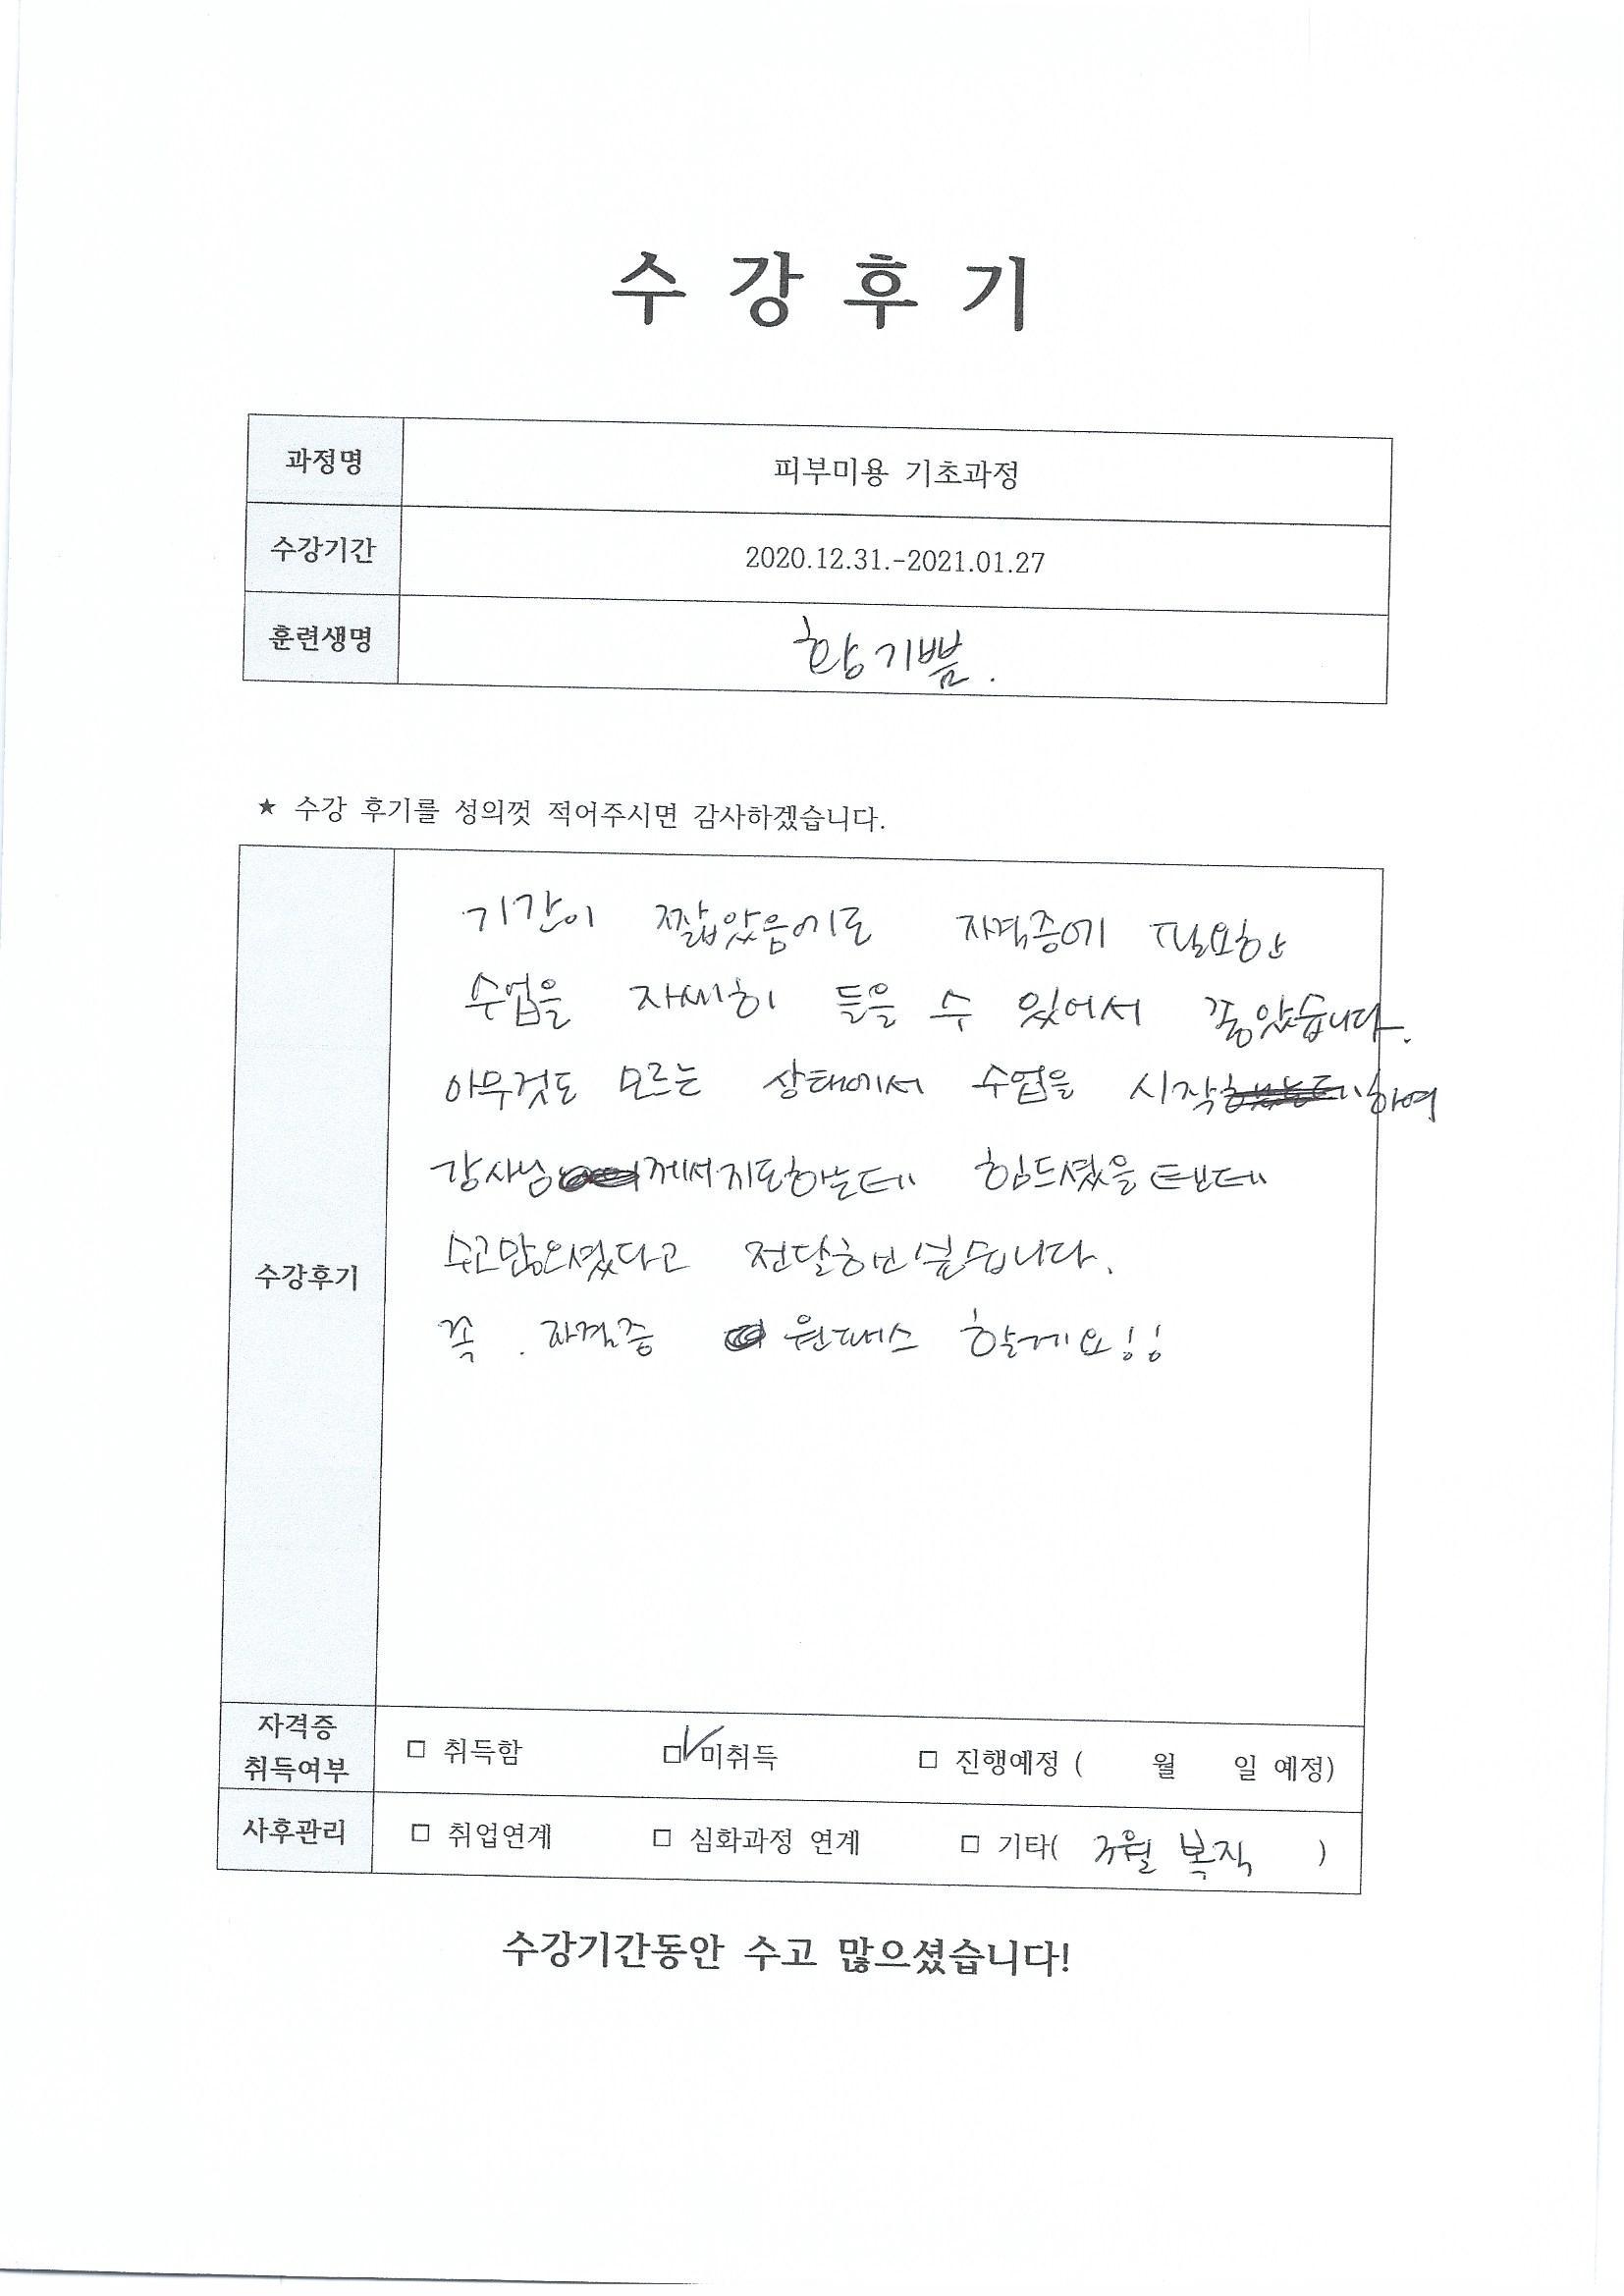 수 강 후 기
과정명 피부미용 기초과정
수강기간 2020.12.31.-2021.01.27
훈련생명 황기쁨.
★ 수강 후기를 성의껏 적어주시면 감사하겠습니다.
수강후기
기간이 짧았음에도 자격증에 필요한
수업을 자세히 들을 수 있어서 좋았습니다.
아무것도 모르는 상태에서 수업을 시작하여
강사님께서 지도하는데 힘드셨을텐데
수고많으셨다고 전달하고싶습니다.
꼭. 자격증 원패스 할게요!!
자격증
취득여부 □ 취득함 □✓미취득 □ 진행예정 ( 월 일 예정)
사후관리 □ 취업연계 □ 심화과정 연계 □ 기타( 3월 복직 )
수강기간동안 수고 많으셨습니다!